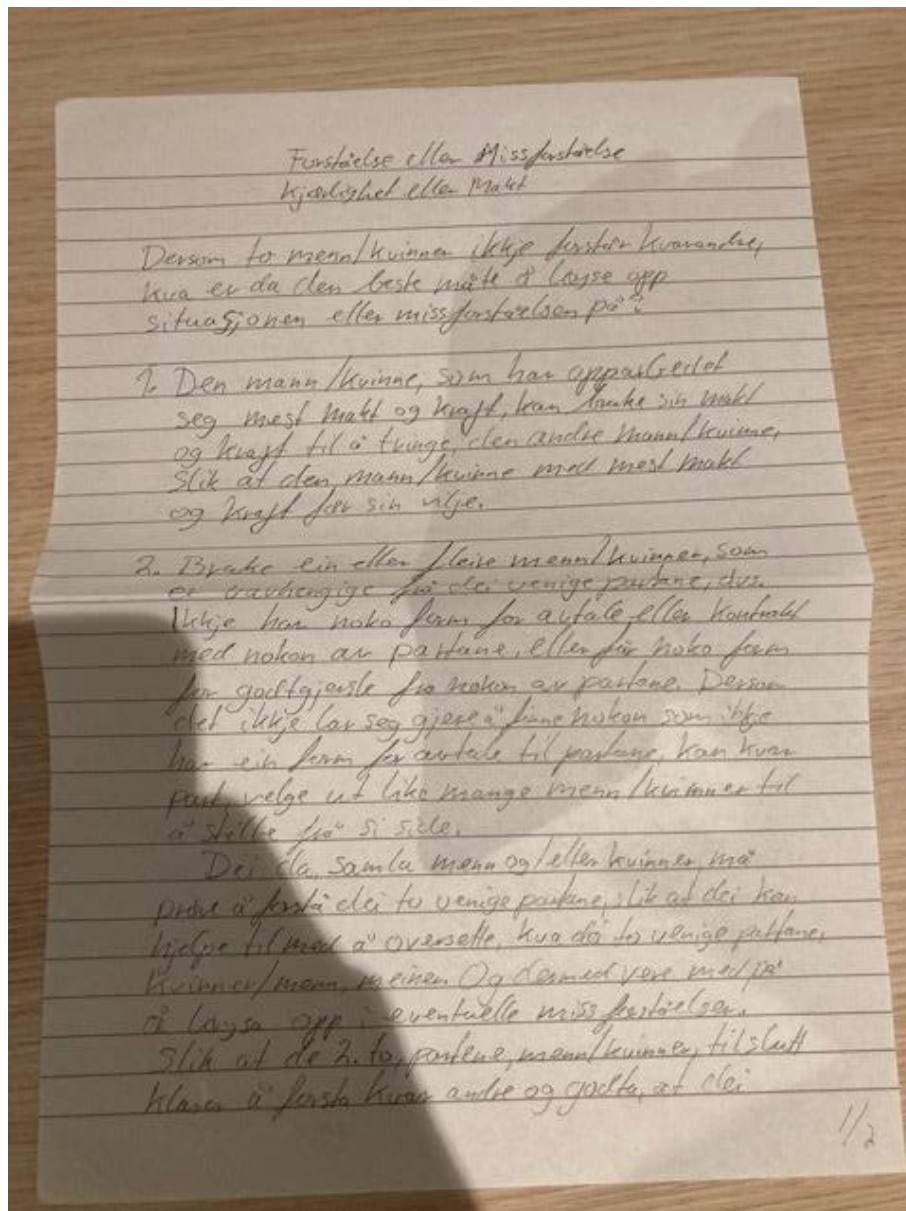 Forståelse eller Missforståelse
Kjærlighet eller Makt
Dersom to menn/kvinner ikkje forstår kvarandre,
kva er da den beste måte å løyse opp
situasjonen eller missforståelsen på?
1. Den mann/kvinne, som har opparbeidet
seg mest makt og kraft, kan bruke sin makt
og kraft til å tvinge, den andre mann/kvinne,
slik at den, mann/kvinne med mest makt
og kraft får sin vilje.
2. Bruke ein eller fleire menn/kvinner, som
er uavhengige frå dei uenige partane, dvs.
Ikkje har noko form for avtale eller kontrakt
med nokon av partane, eller får noko form
for godtgjersle fra nokon av partane. Dersom
det ikkje lar seg gjere å finne nokon som ikkje
har ein form for avtale til partane, kan kvar
part, velge ut like mange menn/kvinner til
å stille frå si side.
Dei da, samla menn og/eller kvinner, må
prøve å forstå dei to uenige partane, slik at dei kan
hjelpe til med å oversette, kva dei to uenige partane,
kvinner/menn, meinen Og dermed vere med på
å løyse opp i eventuelle missforståelser.
Slik at de 2. to, partene, menn/kvinner, tilslutt
klarer å forstå kvar andre og godta, at dei
1/2